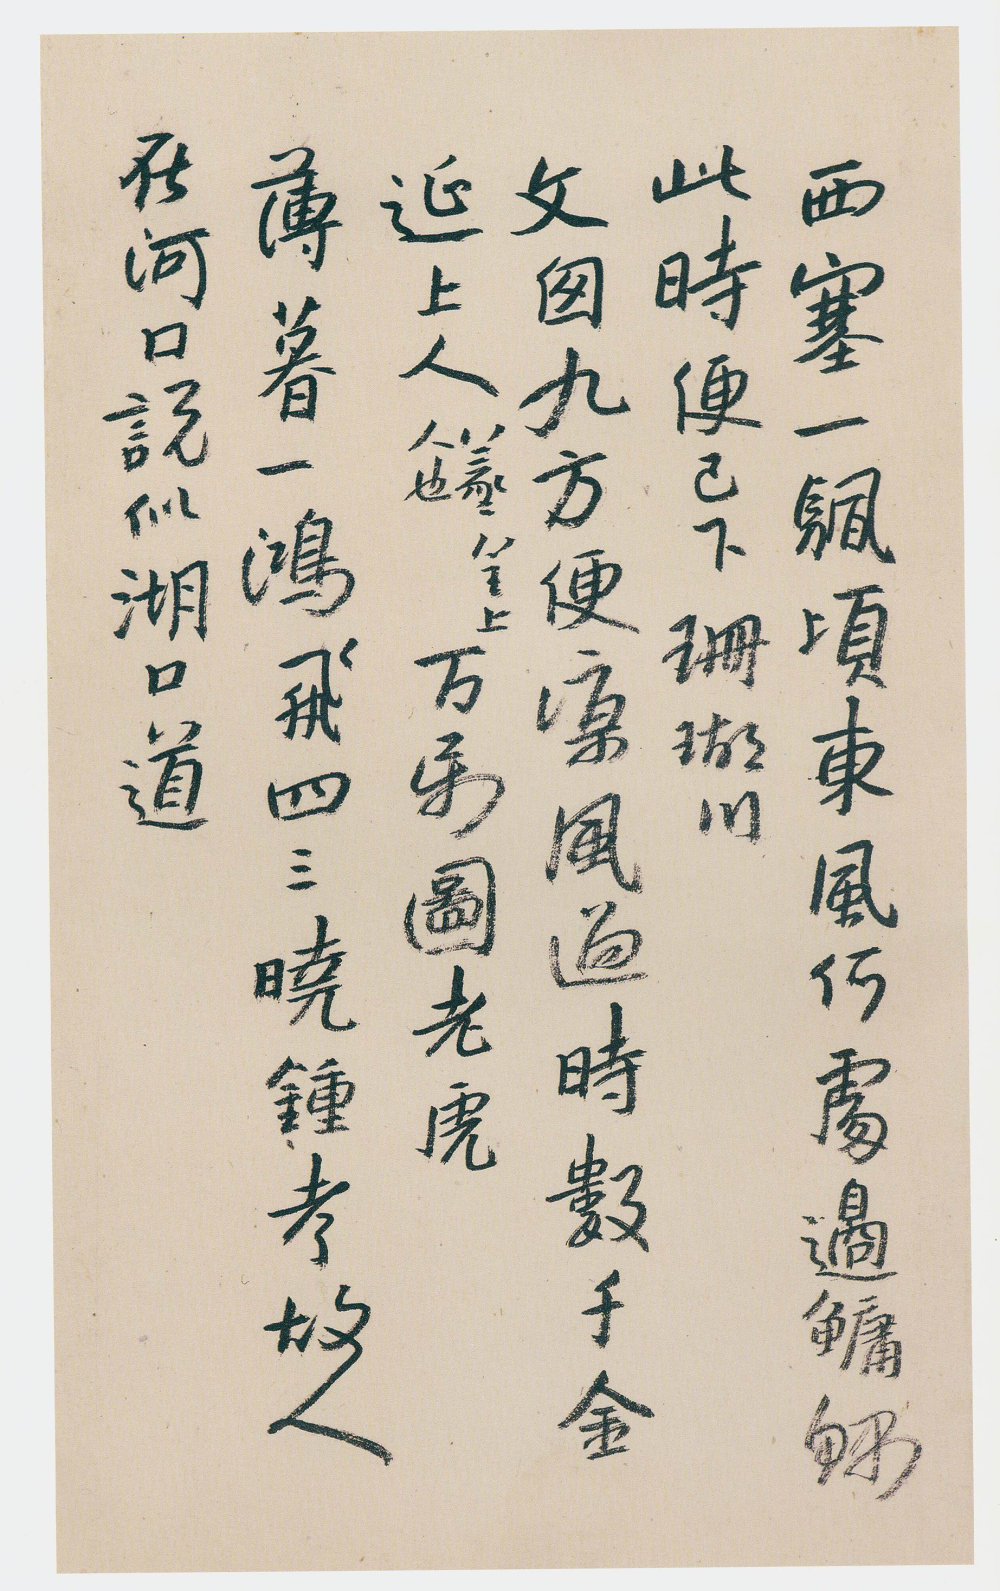 西塞一颿頃東風何處過鳙鰥
此時便已下珊瑚川
文囪九方便涼風過時數千金
延上人也上万圖老虎
薄暮一鴻飛四三曉鍾考故人
在河口説似湖口道